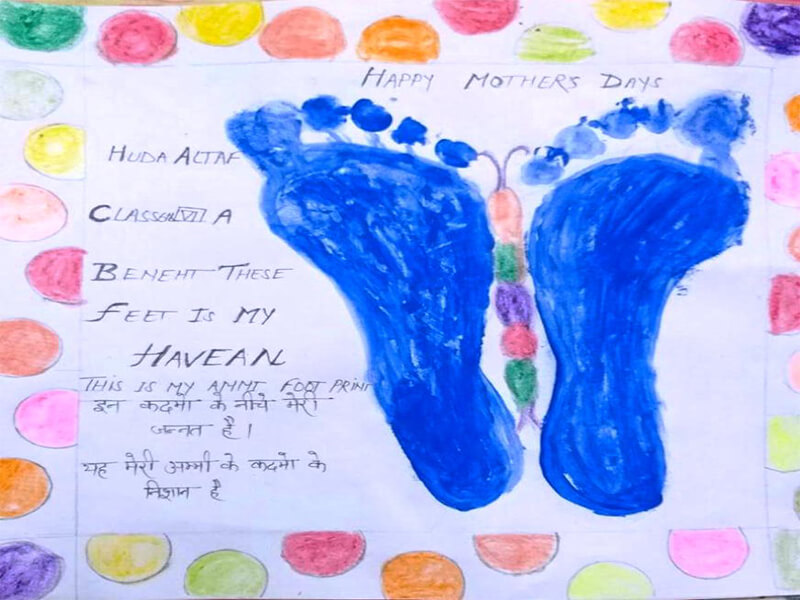 HAPPY MOTHER'S DAYS
HUDA ALTAF
CLASS VII A
BENEHT THESE
FEET IS MY
HAVEAN
THIS IS MY AMMI FOOT PRINT
इन कदमों के नीचे मेरी
जन्नत है।
यह मेरी अम्मी के कदमो के
निशान है